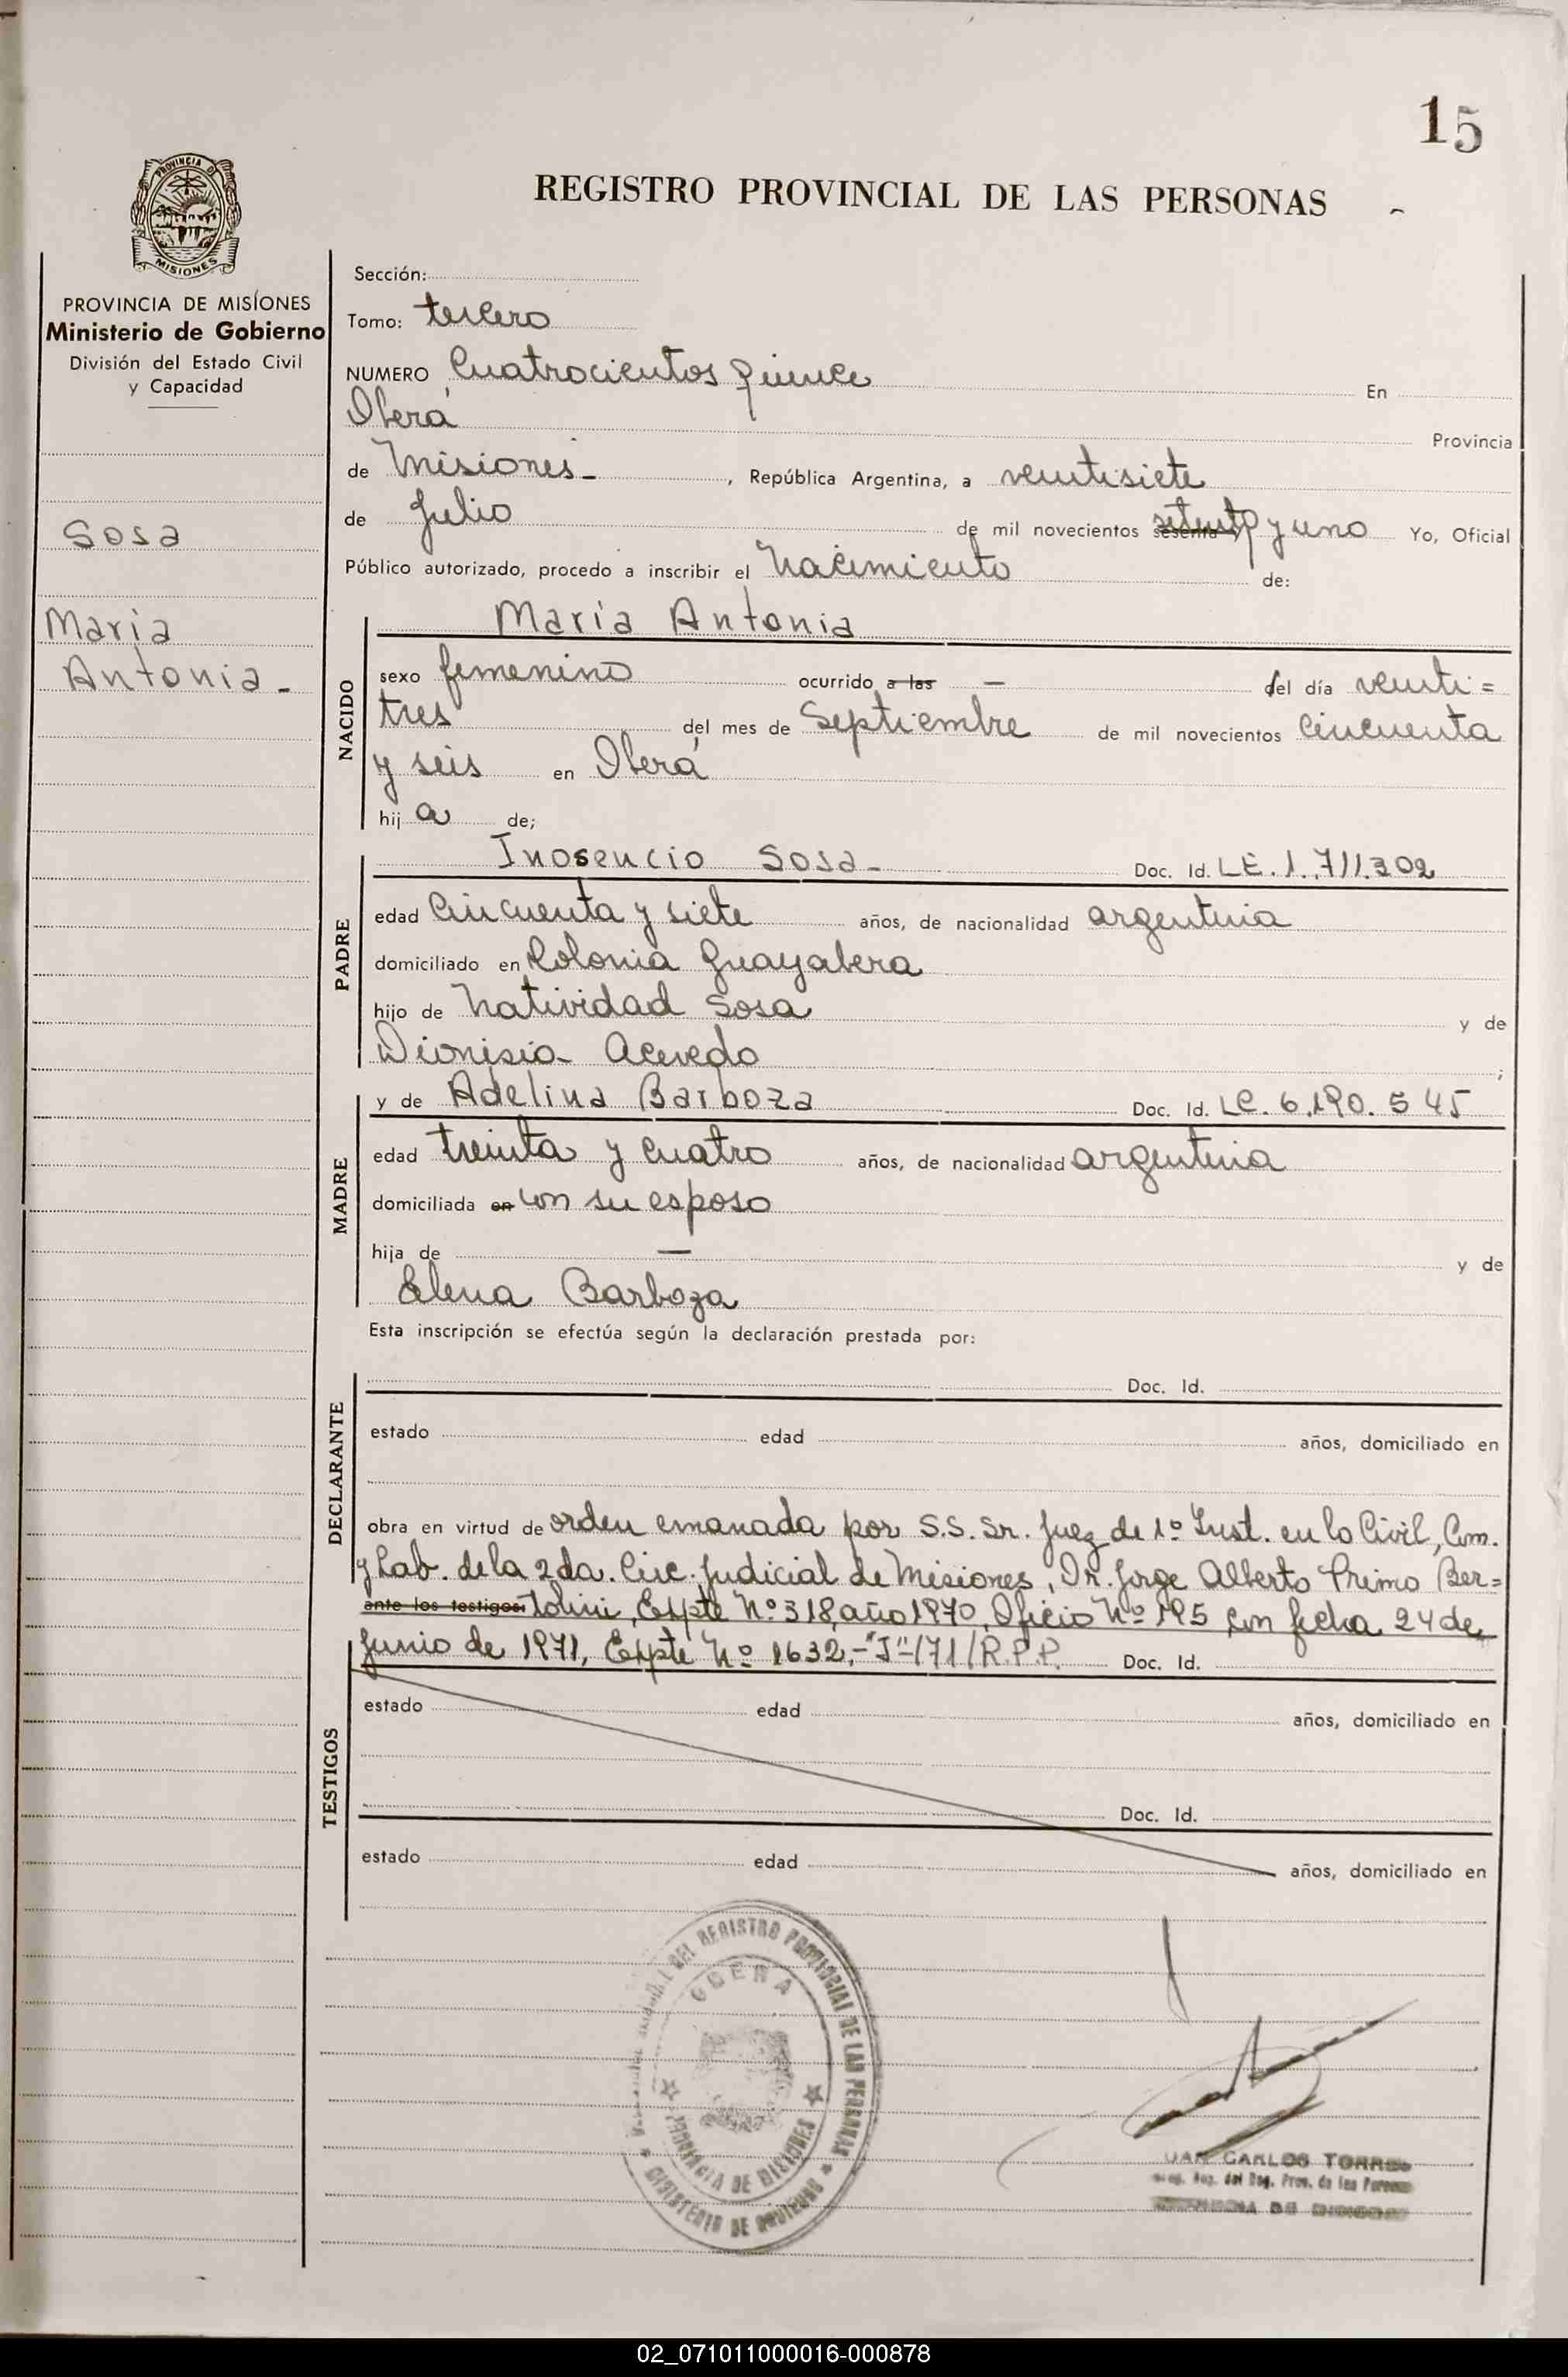 15
REGISTRO PROVINCIAL DE LAS PERSONAS
PROVINCIA DE MISIONES
PROVINCIA DE MISIONES
Ministerio de Gobierno
División del Estado Civil
y Capacidad
Sosa
Maria
Antonia.-
Sección:
Tomo: tercero
NUMERO Cuatrocientos quince En
Oberá Provincia
de Misiones - , República Argentina, a veintisiete
de Julio de mil novecientos sesenta y setenta y uno Yo, Oficial
Público autorizado, procedo a inscribir el Nacimiento de:
NACIDO
María Antonia
sexo femenino ocurrido a las — del día veinti=
tres del mes de Septiembre de mil novecientos cincuenta
y seis en Oberá
hij a de;
PADRE
Inosencio Sosa- Doc. Id. L.E. 1.711.302
edad Cincuenta y siete años, de nacionalidad argentina
domiciliado en Colonia Guayabera
hijo de Natividad Sosa y de
Dionisia Acevedo ;
MADRE
y de Adelina Barboza Doc. Id. L.C. 6.190.545
edad treinta y cuatro años, de nacionalidad argentina
domiciliada en con su esposo
hija de — y de
Elena Barboza
Esta inscripción se efectúa según la declaración prestada por:
DECLARANTE
Doc. Id.
estado edad años, domiciliado en
obra en virtud de orden emanada por S.S. Sr. Juez de 1º Inst. en lo Civil, Com.
y Lab. de la 2da. Circ. Judicial de Misiones, Dr. Jorge Alberto Primo Ber=
ante los testigos: tolini, Expte Nº 318, año 1970, Oficio Nº 195 con fecha 24 de
Junio de 1971, Expte Nº 1632,-"J"-/71/R.P.P. Doc. Id.
TESTIGOS
estado edad años, domiciliado en
Doc. Id.
estado edad años, domiciliado en
DEL REGISTRO PROVINCIAL DE LAS PERSONAS
MINISTERIO DE GOBIERNO
PROVINCIA DE MISIONES
JUAN CARLOS TORRES
del Reg. Prov. de las Personas
02_071011000016-000878